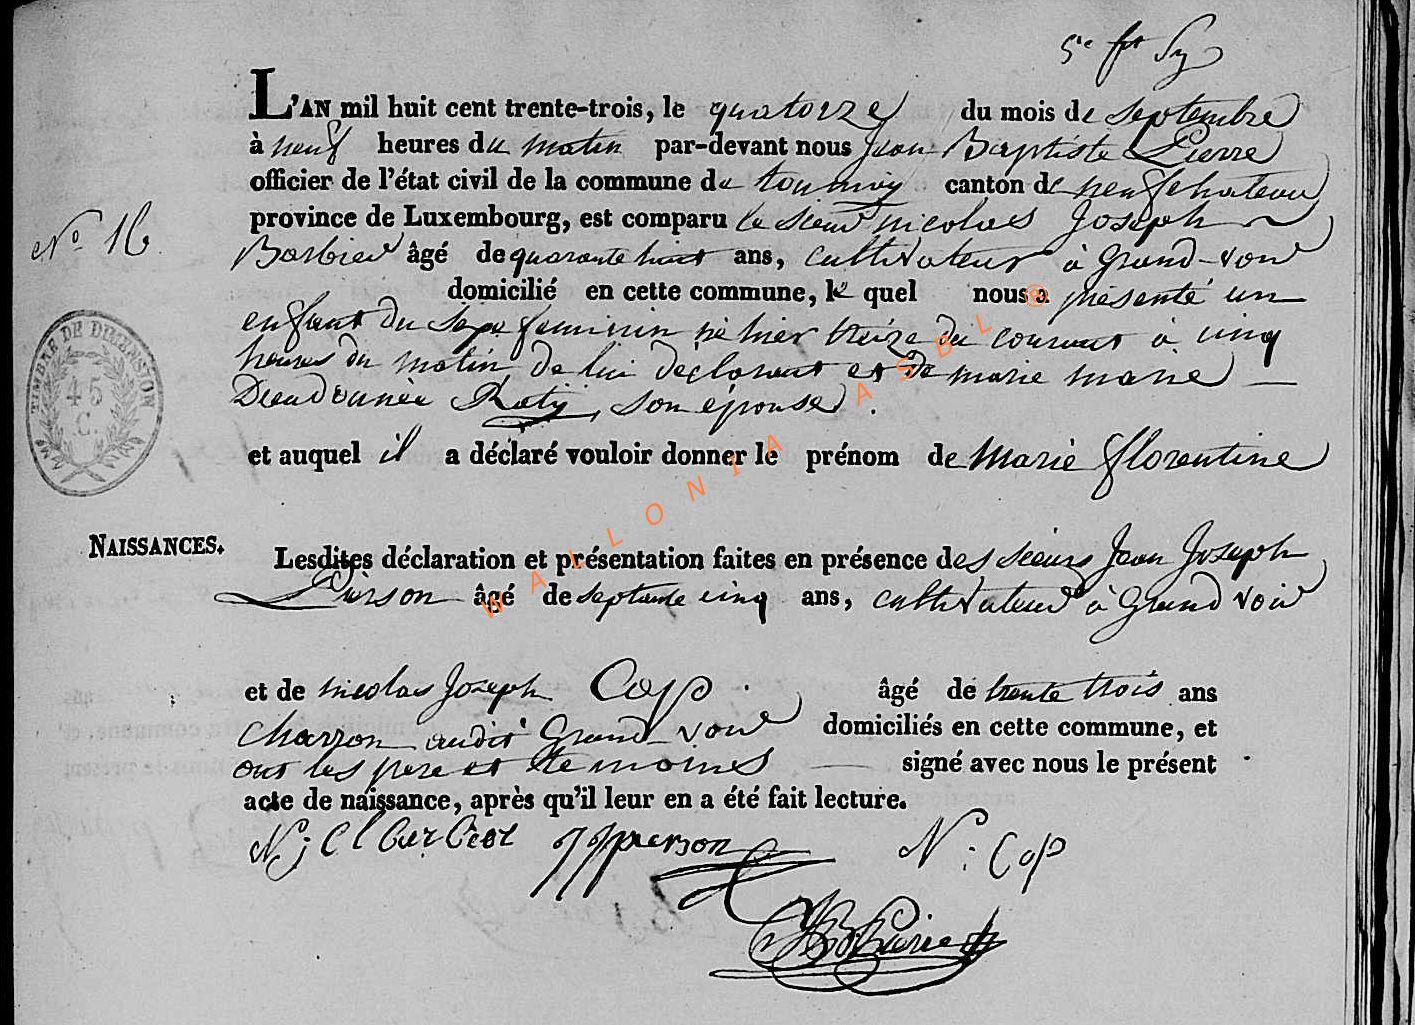 5e ft
L'AN mil huit cent trente-trois, le quatorze du mois de septembre
à neuf heures du matin par-devant nous Jean Baptiste Pierre
officier de l'état civil de la commune de tournay canton de neufchateau
province de Luxembourg, est comparu le sieur nicolas Joseph
No 16.
Barbier âgé de quarante huit ans, cultivateur à Grand-voir
domicilié en cette commune, le quel nous a présenté un
enfant du sexe feminin né hier treize du courant à cinq
heures du matin de lui déclarant et de marie marie
Dieudonnée Raty, son épouse.
TIMBRE DE DIMENSION
45
C.
et auquel il a déclaré vouloir donner le prénom de Marie florentine
NAISSANCES.
Lesdites déclaration et présentation faites en présence des sieurs Jean Joseph
Pierson âgé de septante cinq ans, cultivateur à Grand voir
et de nicolas Joseph Cop âgé de trente trois ans
charron audit Grand-voir domiciliés en cette commune, et
ont les pere et temoins signé avec nous le présent
acte de naissance, après qu'il leur en a été fait lecture.
jjpierson N: Cop
WALLONIA ASBL ®